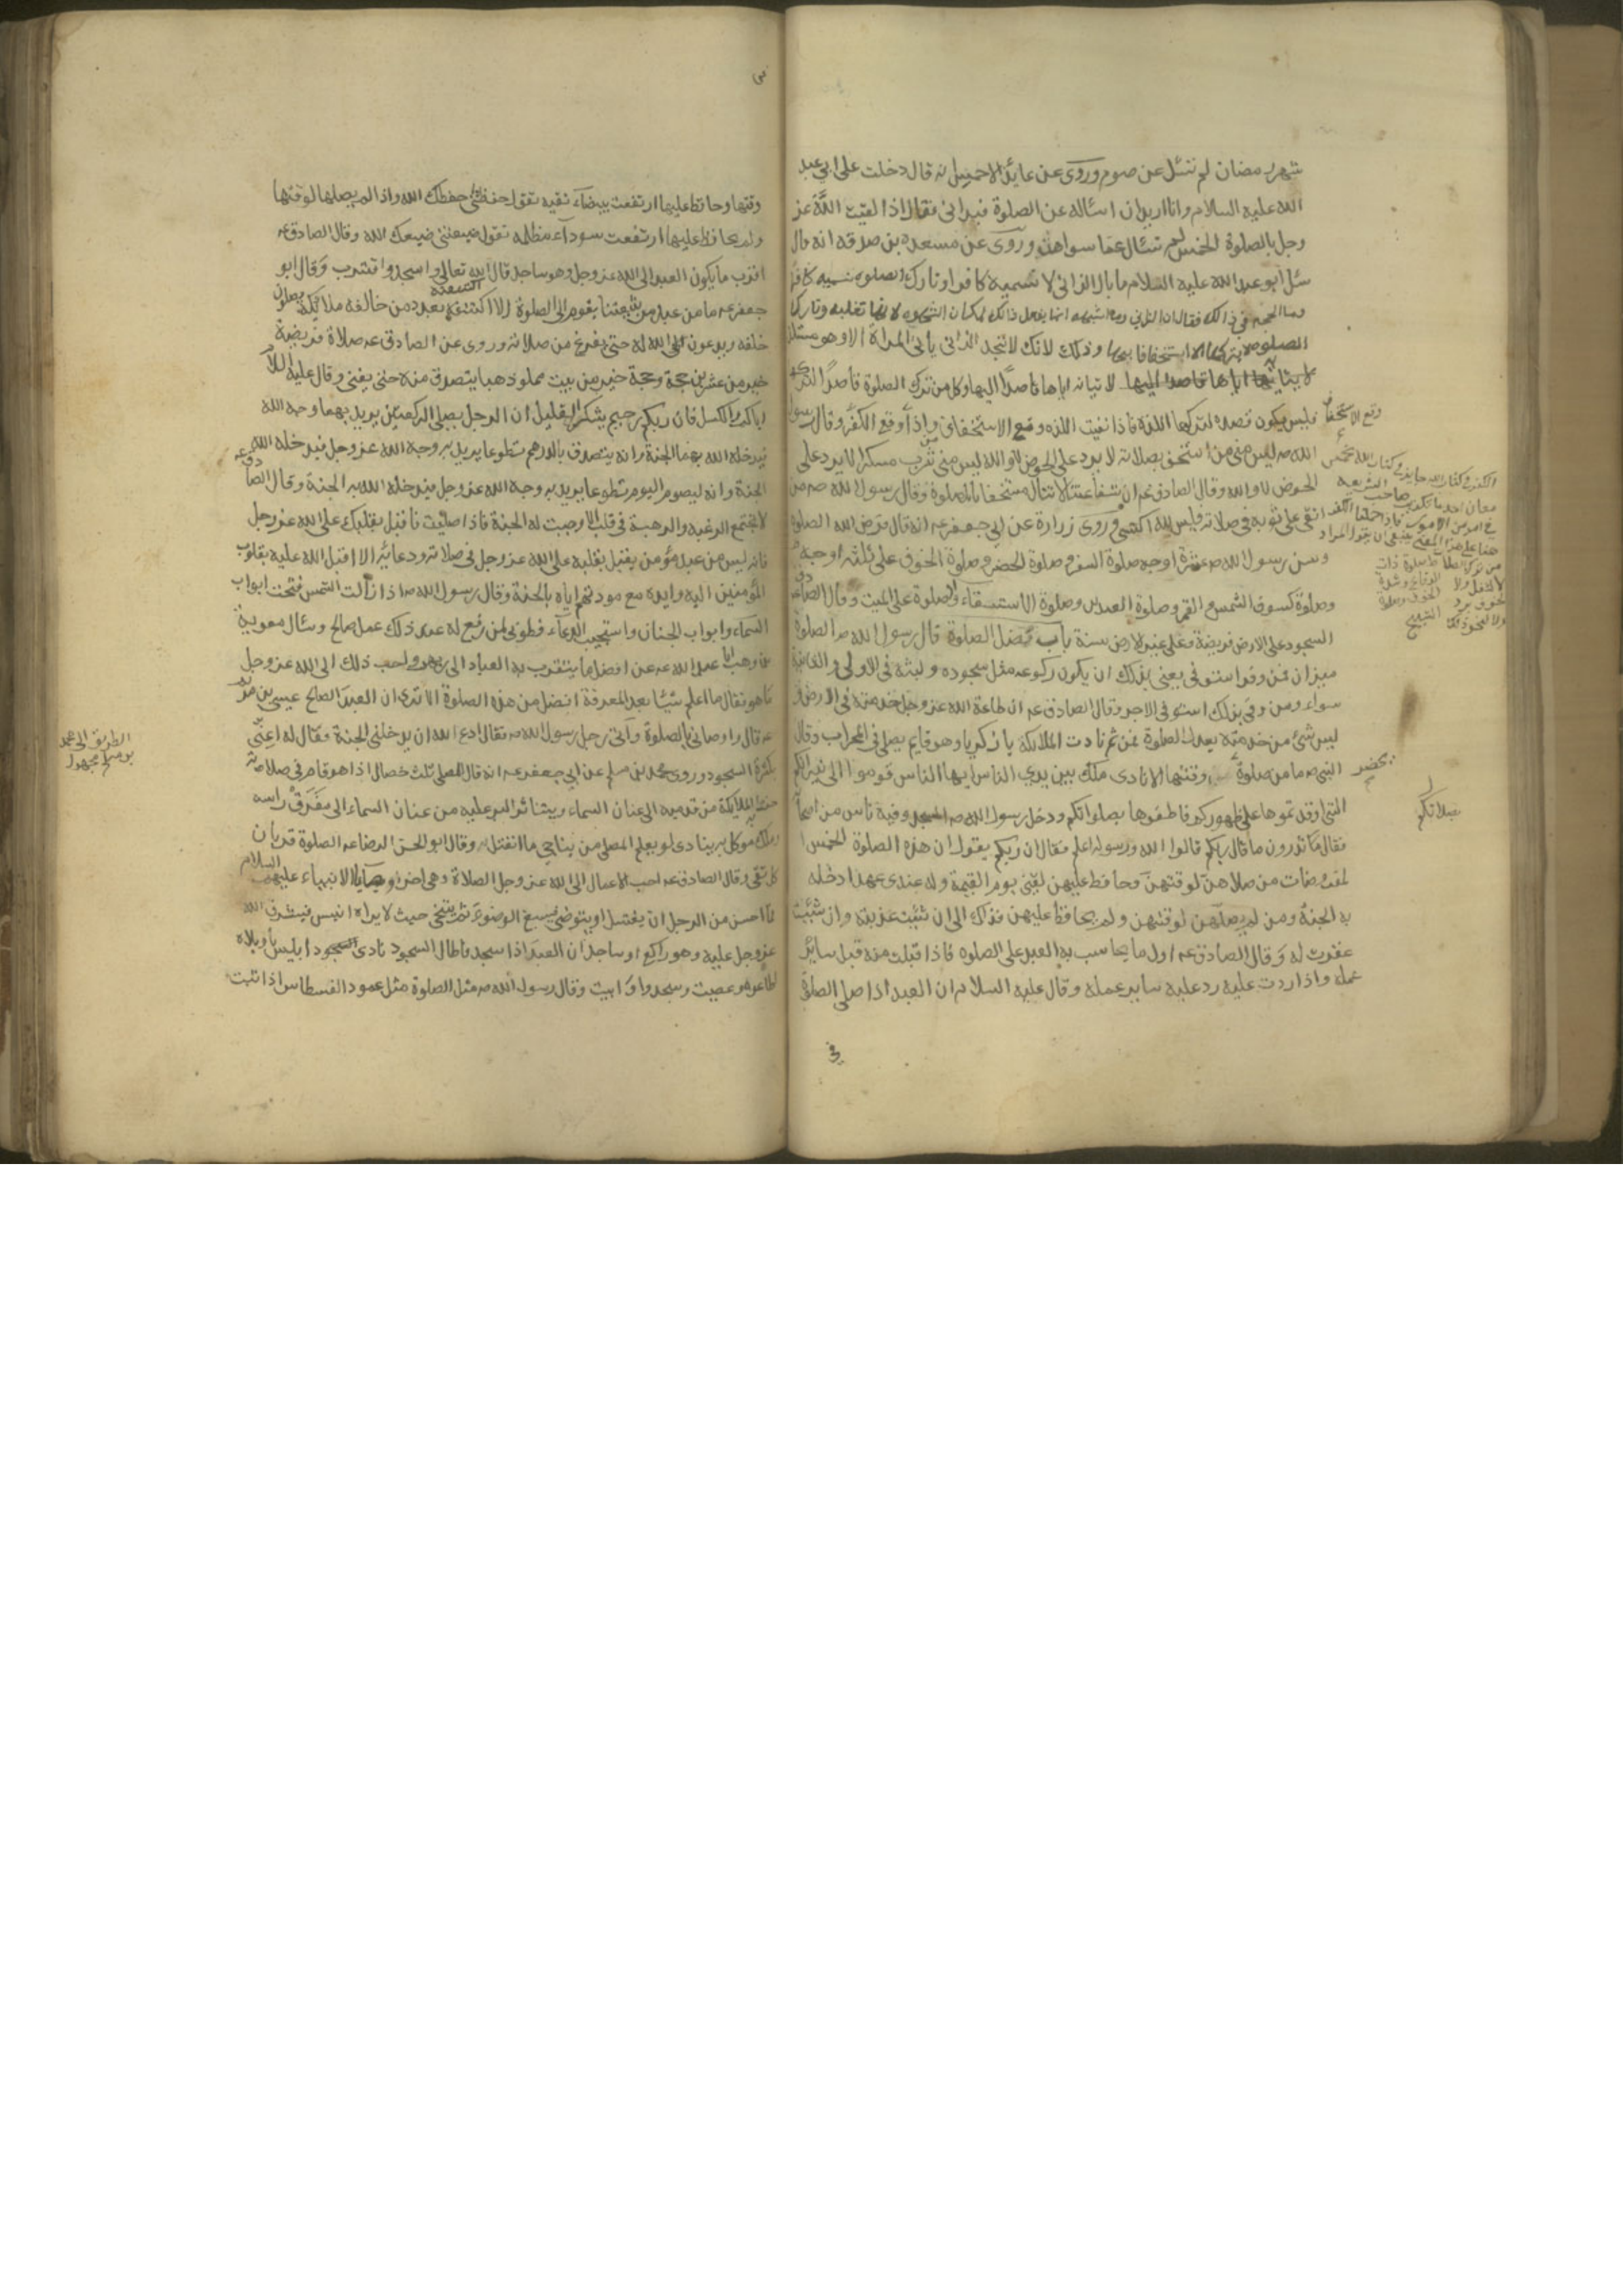 شهر رمضان لم تسئل عن صوم وروى عن عايذ الاحمسى انه قال دخلت على ابي عبد
الله عليه السلام وانا اريد ان اسئاله عن الصلوة فبدانى فقال اذا لقيت الله عز
وجل بالصلوة الخمس لم تسئال عما سواهن وروى عن مسعدة بن صدقه انه قال
سئل ابو عبد الله عليه السلام ما بال الزانى لا تسميه كافرا وتارك الصلوه تسميه كافرا
وما الحجه فى ذالك فقال لان الزانى وما اشبهه انما يفعل ذالك لمكان الشهوه لانها تغلبه وتارك
الصلوه لا يتركها الا استخفافا بها وذلك لانك لا تجد الزانى ياتى المراة الا وهو مستلذ
لاتيانه اياها قاصدا اليها وكل من ترك الصلوة قاصدا لتركها
فليس يكون قصده لتركها اللذة فاذا نفيت اللذه وقع الاستخفاف واذا وقع الاستخفاف وقع الكفر وقال رسول
الله ص ليس منى من استخف بصلاته لا يرد على الحوض لا والله ليس منى من شرب مسكرا لا يرد على
الحوض لا والله وقال الصادق ع ان شفاعتنا لا تنال مستخفا بالصلوة وقال رسول الله ص من
اتقى على ثوبه فى صلاته فليس لله اكتسى وروى زرارة عن ابي جعفر ع انه قال فرض الله الصلوة
وسن رسول الله ص عشرة اوجه صلوة السفر وصلوة الحضر وصلوة الخوف على ثلثة اوجه
وصلوة كسوف الشمس والقمر وصلوة العيدين وصلوة الاستسقاء والصلوة على الميت وقال الصادق
السجود على الارض فريضة وعلى غير الارض سنة باب فضل الصلوة قال رسول الله ص الصلوة
ميزان فمن وفى استوفى يعنى بذلك ان يكون ركوعه مثل سجوده ولبثه فى الاولى والثانية
سواء ومن وفى بذلك استوفى الاجر وقال الصادق ع ان طاعة الله عز وجل خدمته فى الارض و
ليس شئ من خدمته يعدل الصلوة فمن ثم نادت الملائكة يا زكريا وهو قايم يصلى فى المحراب وقال
النبي ص ما من صلوة يحضر وقتها الا نادى ملك بين يدي الناس ايها الناس قوموا الى نيرانكم
التى اوقدتموها على ظهوركم فاطفئوها بصلواتكم ودخل رسول الله ص المسجد وفيه ناس من اصحابه
فقال تدرون ما قال ربكم قالوا الله ورسوله اعلم فقال ان ربكم يقول ان هذه الصلوة الخمس ا
لمفروضات من صلاهن لوقتهن وحافظ عليهن لقينى يوم القيمة وله عندى عهد ادخله
به الجنة ومن لم يصلهن لوقتهن ولم يحافظ عليهن فذلك الى ان شئت عذبته وان شئت
غفرت له وقال الصادق ع اول ما يحاسب به العبد على الصلوه فاذا قبلت منه قبل ساير
عمله واذا ردت عليه رد عليه ساير عمله وقال عليه السلام ان العبد اذا صلى الصلوة
فى
بصلاتكم
وقتها وحافظ عليها ارتفعت بيضاء نقيه تقول حفظتنى حفظك الله واذا لم يصلها لوقتها
ولم يحافظ عليها ارتفعت سوداء مظلمه تقول ضيعتنى ضيعك الله وقال الصادق ع
اقرب ما يكون العبد الى الله عز وجل وهو ساجد قال الله تعالى واسجد واقترب وقال ابو
جعفر ع ما من عبد من شيعتنا يقوم الى الصلوة الا اكتنفته بعدد من خالفه ملائكة يصلون
خلفه ويدعون الله له حتى يفرغ من صلاته وروى عن الصادق ع صلاة فريضة
خير من عشرين حجة وحجة خير من بيت مملو ذهبا يتصدق منه حتى يفنى وقال عليه السلام
اياكم والكسل فان ربكم رحيم يشكر القليل ان الرجل يصلى الركعتين يريد بهما وجه الله
فيدخله الله بهما الجنة وانه يتصدق بالدرهم تطوعا يريد به وجه الله عز وجل فيدخله الله
الجنة وانه ليصوم اليوم تطوعا يريد به وجه الله عز وجل فيدخله الله به الجنة وقال الصادق ع
لا تجتمع الرغبه والرهبة فى قلب الا وجبت له الجنة فاذا صليت فاقبل بقلبك على الله عز وجل
فانه ليس من عبد مؤمن يقبل بقلبه على الله عز وجل فى صلاته ودعائه الا اقبل الله عليه بقلوب
المؤمنين اليه وايده مع مودتهم اياه بالجنة وقال رسول الله ص اذا زالت الشمس فتحت ابواب
السماء وابواب الجنان واستجيب الدعاء فطوبى لمن رفع له عند ذلك عمل صالح وسئال معوية
بن وهب ابا عبد الله ع عن افضل ما يتقرب به العباد الى ربهم واحب ذلك الى الله عز وجل
ما هو فقال ما اعلم شيئا بعد المعرفة افضل من هذه الصلوة الا ترى ان العبد الصالح عيسى بن مريم
ع قال واوصانى بالصلوة واتى رجل رسول الله ص فقال ادع الله ان يدخلنى الجنة فقال له اعنى
بكثرة السجود وروى محمد بن مسلم عن ابي جعفر ع انه قال للمصلى ثلث خصال اذا هو قام فى صلاته
حفته الملايكة من قدميه الى عنان السماء ويتناثر البر عليه من عنان السماء الى مفرق راسه
وملك موكل به ينادى لو يعلم المصلى من يناجى ما انفتل وقال ابو الحسن الرضا ع الصلوة قربان
كل تقى وقال الصادق ع احب الاعمال الى الله عز وجل الصلاة وهى اخر وصايا الانبياء عليهم السلام
فما احسن من الرجل ان يغتسل او يتوضى فيسبغ الوضوء ثم يتنحى حيث لا يراه انيس فيشرف الله
عز وجل عليه وهو راكع او ساجد ان العبد اذا سجد فاطال السجود نادى ابليس ياويلاه
اطاعوا وعصيت وسجدوا وابيت وقال رسول الله ص مثل الصلوة مثل عمود الفسطاس اذا ثبت